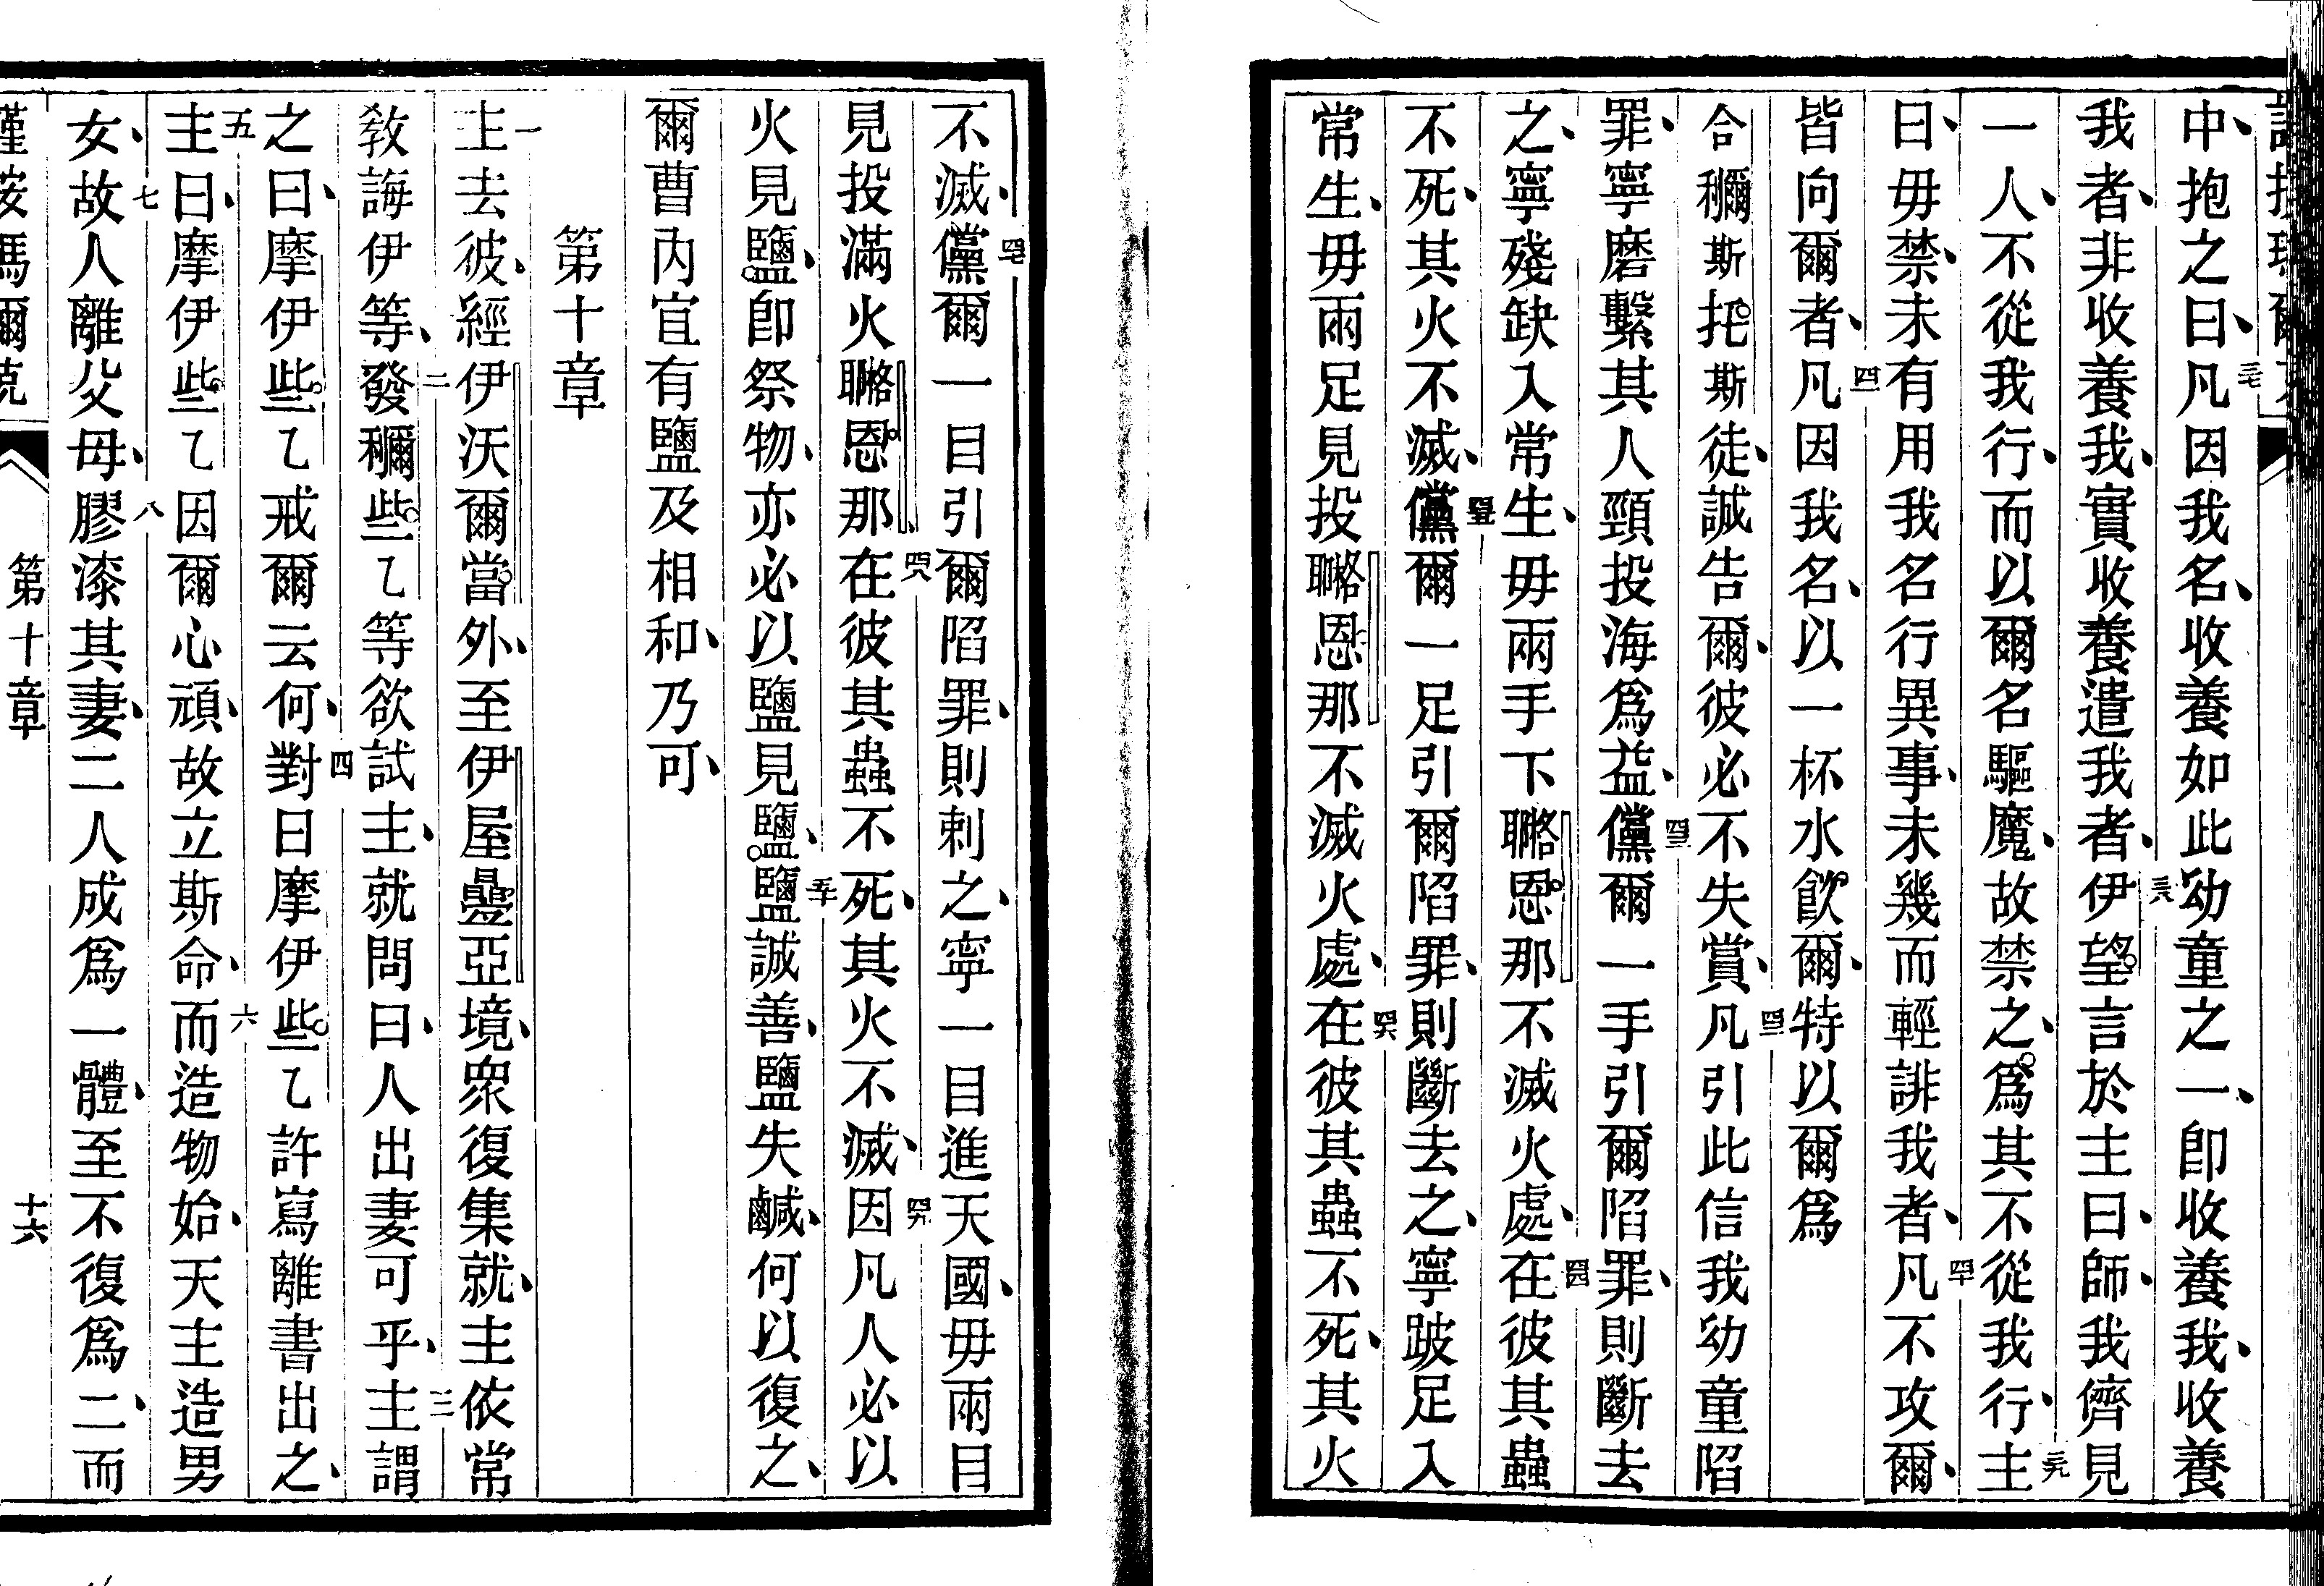 中、抱之曰、三七凡因我名、收養如此幼童之一、卽收養我、收養
我者、非收養我、實收養遣我者、三八伊望言於主曰、師、我儕見
一人、不從我行、而以爾名驅魔、故禁之、爲其不從我行、三九主
曰、毋禁、未有用我名行異事、未幾而輕誹我者、四十凡不攻爾、
皆向爾者、四一凡因我名、以一杯水飲爾、特以爾爲
合穪斯托斯徒、誠告爾、彼必不失賞、四二凡引此信我幼童陷
罪、寧磨繫其人頸投海爲益、四三儻爾一手引爾陷罪、則斷去
之、寧殘缺入常生、毋兩手下𦗖恩那不滅火處、四四在彼其蟲
不死、其火不滅、四五儻爾一足引爾陷罪、則斷去之、寧跛足入
常生、毋兩足見投𦗖恩那不滅火處、四六在彼其蟲不死、其火
不滅、四七儻爾一目引爾陷罪、則剌之、寧一目進天國、毋兩目
見投滿火𦗖恩那、四八在彼其蟲不死、其火不滅、四九因凡人必以
火見鹽、卽祭物、亦必以鹽見鹽、五十鹽誠善、鹽失鹹、何以復之、
爾曹內宜有鹽及相和、乃可、
第十章
一主去彼、經伊沃爾當外、至伊屋疊亞境、衆復集就、主依常
敎誨伊等、二發穪些乙等欲試主、就問曰、人出妻可乎、三主謂
之曰、摩伊些乙戒爾云何、四對曰摩伊些乙許寫離書出之、
五主曰、摩伊些乙因爾心頑、故立斯命、六而造物始、天主造男
女、七故人離父母、八膠漆其妻、二人成爲一體、至不復爲二、而
第十章
十六